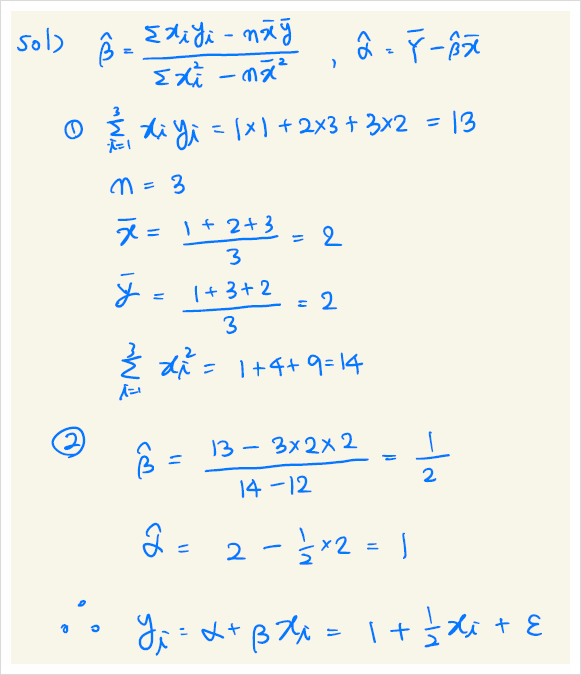 sol) β̂ = (Σxᵢyᵢ - nx̄ȳ) / (Σxᵢ² - nx̄²) , α̂ = Ȳ - β̂x̄
① Σᵢ₌₁³ xᵢyᵢ = 1×1 + 2×3 + 3×2 = 13
n = 3
x̄ = (1 + 2 + 3) / 3 = 2
ȳ = (1 + 3 + 2) / 3 = 2
Σᵢ₌₁³ xᵢ² = 1 + 4 + 9 = 14
② β̂ = (13 - 3×2×2) / (14 - 12) = 1/2
α̂ = 2 - 1/2 × 2 = 1
∴ yᵢ = α + βxᵢ = 1 + 1/2 xᵢ + ε